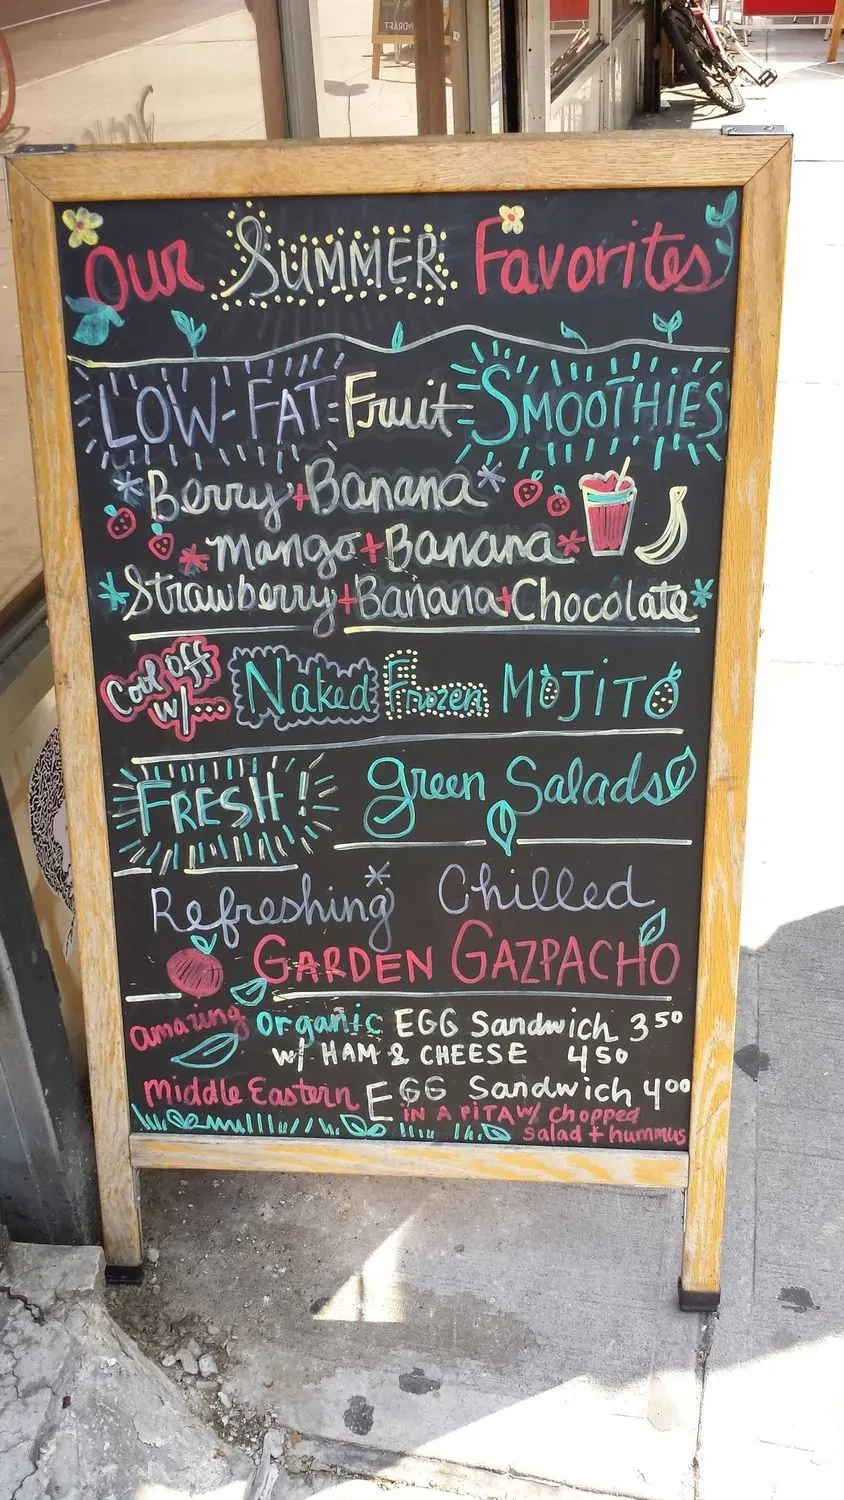 Our SUMMER Favorites
LOW-FAT Fruit SMOOTHIES
Berry+Banana
Mango+Banana
Strawberry+Banana+Chocolate
Cool off
w/... Naked Frozen MOJITO
FRESH! green Salads
Refreshing Chilled
GARDEN GAZPACHO
amazing Organic EGG Sandwich 3 50
w/ HAM & CHEESE 4 50
Middle Eastern EGG Sandwich 4 00
IN A PITA W/ chopped
salad + hummus